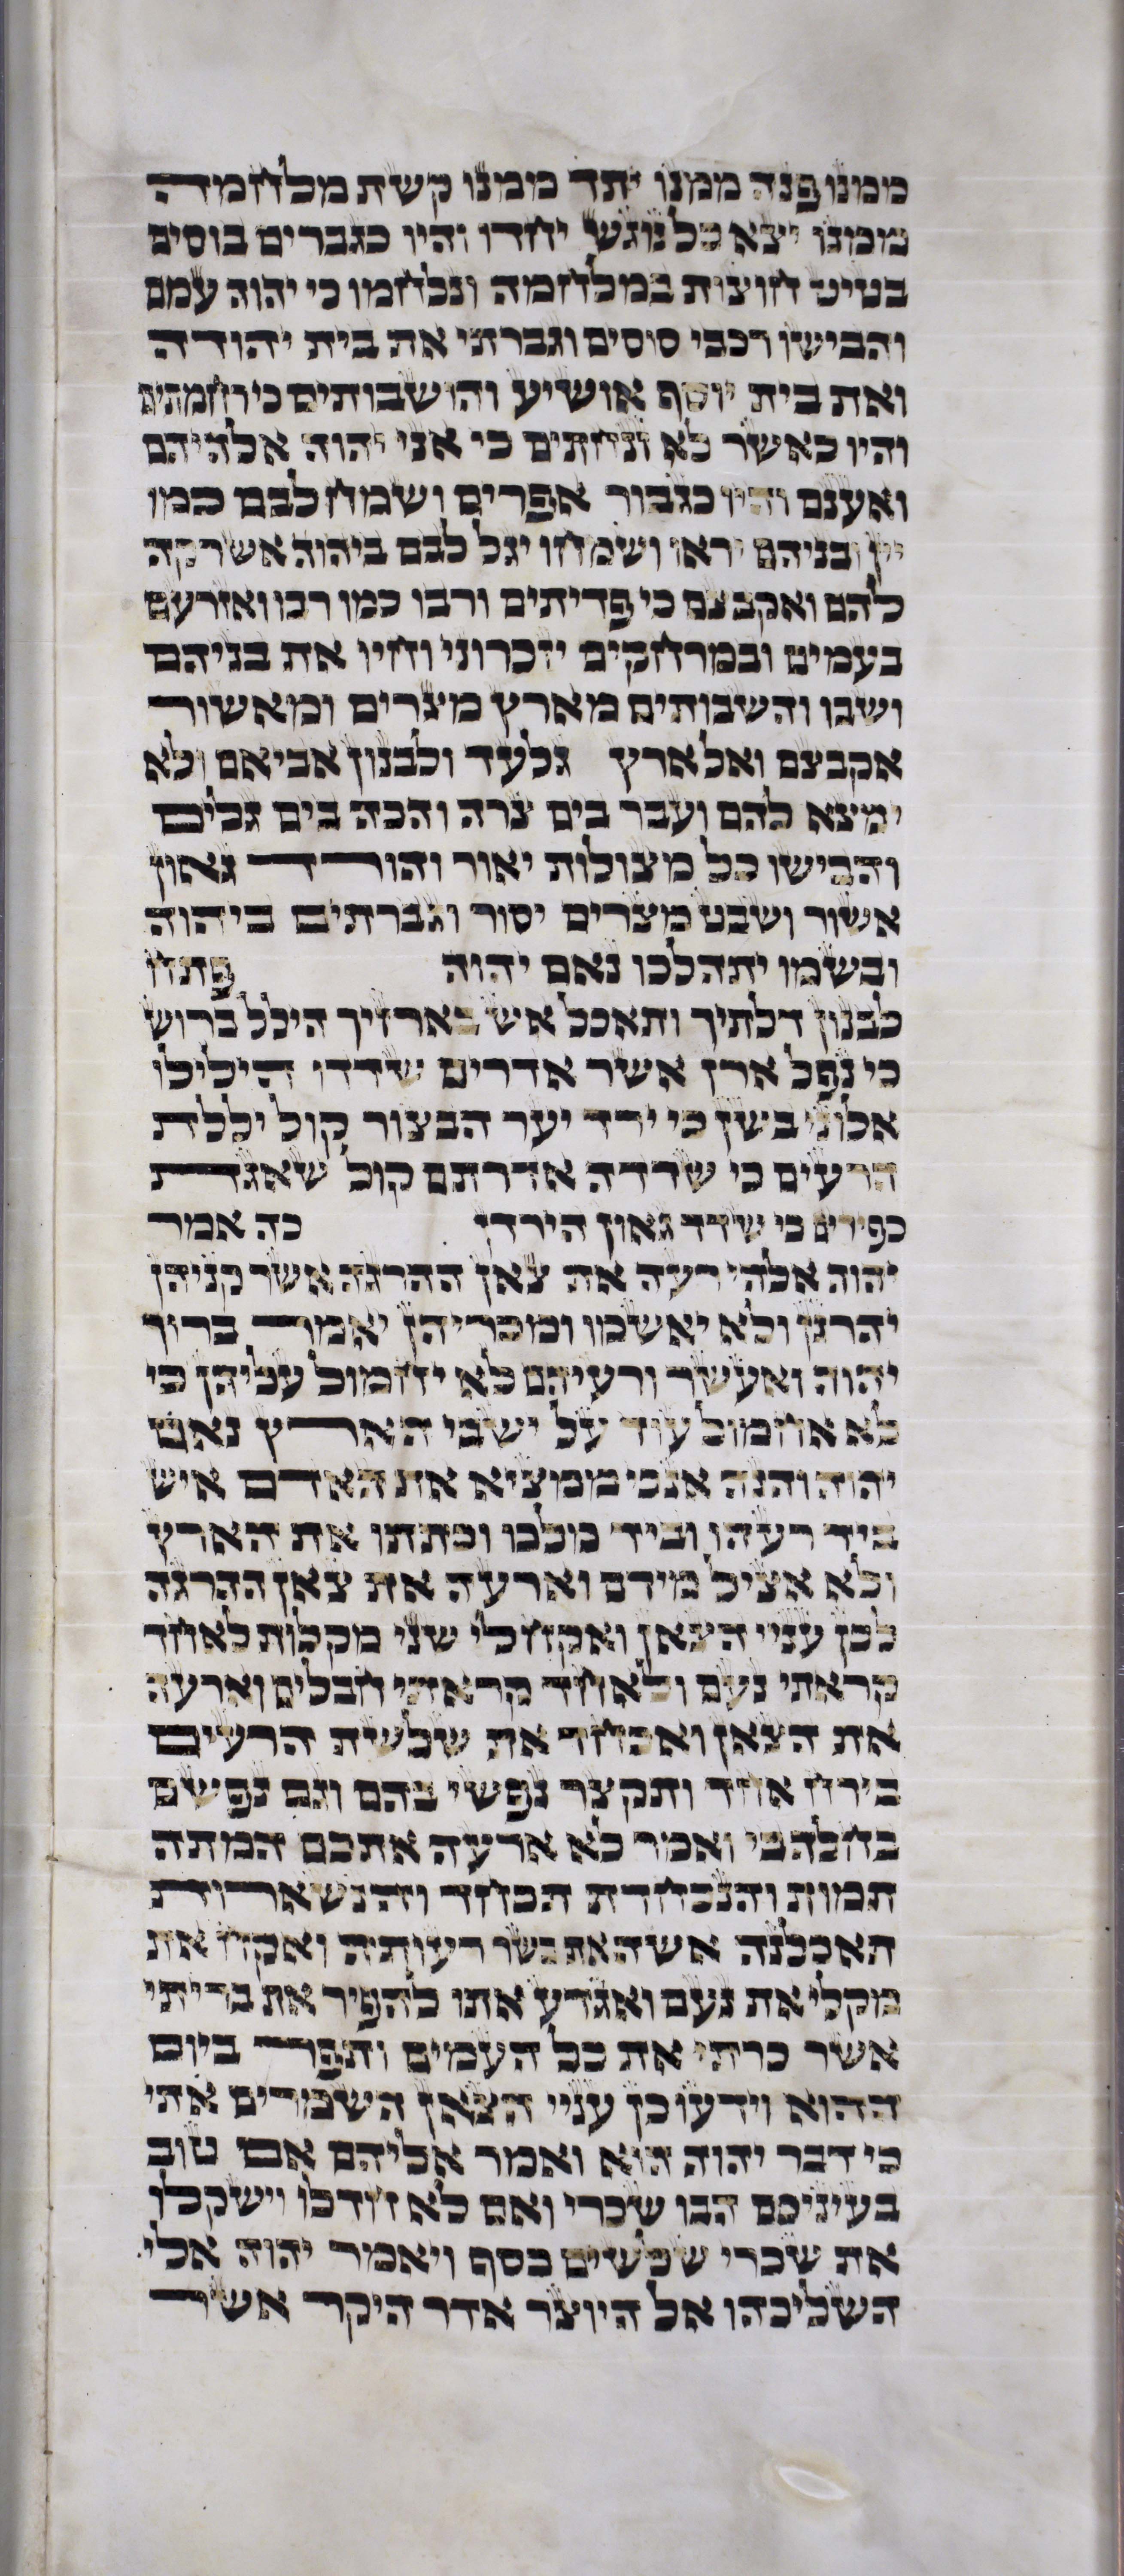 ממנו פנה ממנו יתד ממנו קשת מלחמה
ממנו יצא כל נוגש יחדו והיו כגברים בוסים
בטיט חוצות במלחמה ונלחמו כי יהוה עמם
והבישו רכבי סוסים וגברתי את בית יהודה
ואת בית יוסף אושיע והושבותים כי רחמתים
והיו כאשר לא זנחתים כי אני יהוה אלהיהם
ואענם והיו כגבור אפרים ושמח לבם כמו
יין ובניהם יראו ושמחו יגל לבם ביהוה אשרקה
להם ואקבצם כי פדיתים ורבו כמו רבו ואזרעם
בעמים ובמרחקים יזכרוני וחיו את בניהם
ושבו והשבותים מארץ מצרים ומאשור
אקבצם ואל ארץ גלעד ולבנון אביאם ולא
ימצא להם ועבר בים צרה והכה בים גלים
והבישו כל מצולות יאור והורד גאון
אשור ושבט מצרים יסור וגברתים ביהוה
ובשמו יתהלכו נאם יהוה פתח
לבנון דלתיך ותאכל אש בארזיך הילל ברוש
כי נפל ארז אשר אדרים שדדו הילילו
אלוני בשן כי ירד יער הבצור קול יללת
הרעים כי שדדה אדרתם קול שאגת
כפירים כי שדד גאון הירדן כה אמר
יהוה אלהי רעה את צאן ההרגה אשר קניהן
יהרגן ולא יאשמו ומכריהן יאמר ברוך
יהוה ואעשר ורעיהם לא יחמול עליהן כי
לא אחמול עוד על ישבי הארץ נאם
יהוה והנה אנכי ממציא את האדם איש
ביד רעהו וביד מלכו וכתתו את הארץ
ולא אציל מידם וארעה את צאן ההרגה
לכן עניי הצאן ואקח לי שני מקלות לאחד
קראתי נעם ולאחד קראתי חבלים וארעה
את הצאן ואכחד את שלשת הרעים
בירח אחד ותקצר נפשי בהם וגם נפשם
בחלה בי ואמר לא ארעה אתכם המתה
תמות והנכחדת תכחד והנשארות
תאכלנה אשה את בשר רעותה ואקח את
מקלי את נעם ואגדע אתו להפיר את בריתי
אשר כרתי את כל העמים ותפר ביום
ההוא וידעו כן עניי הצאן השמרים אתי
כי דבר יהוה הוא ואמר אליהם אם טוב
בעיניכם הבו שכרי ואם לא חדלו וישקלו
את שכרי שלשים כסף ויאמר יהוה אלי
השליכהו אל היוצר אדר היקר אשר